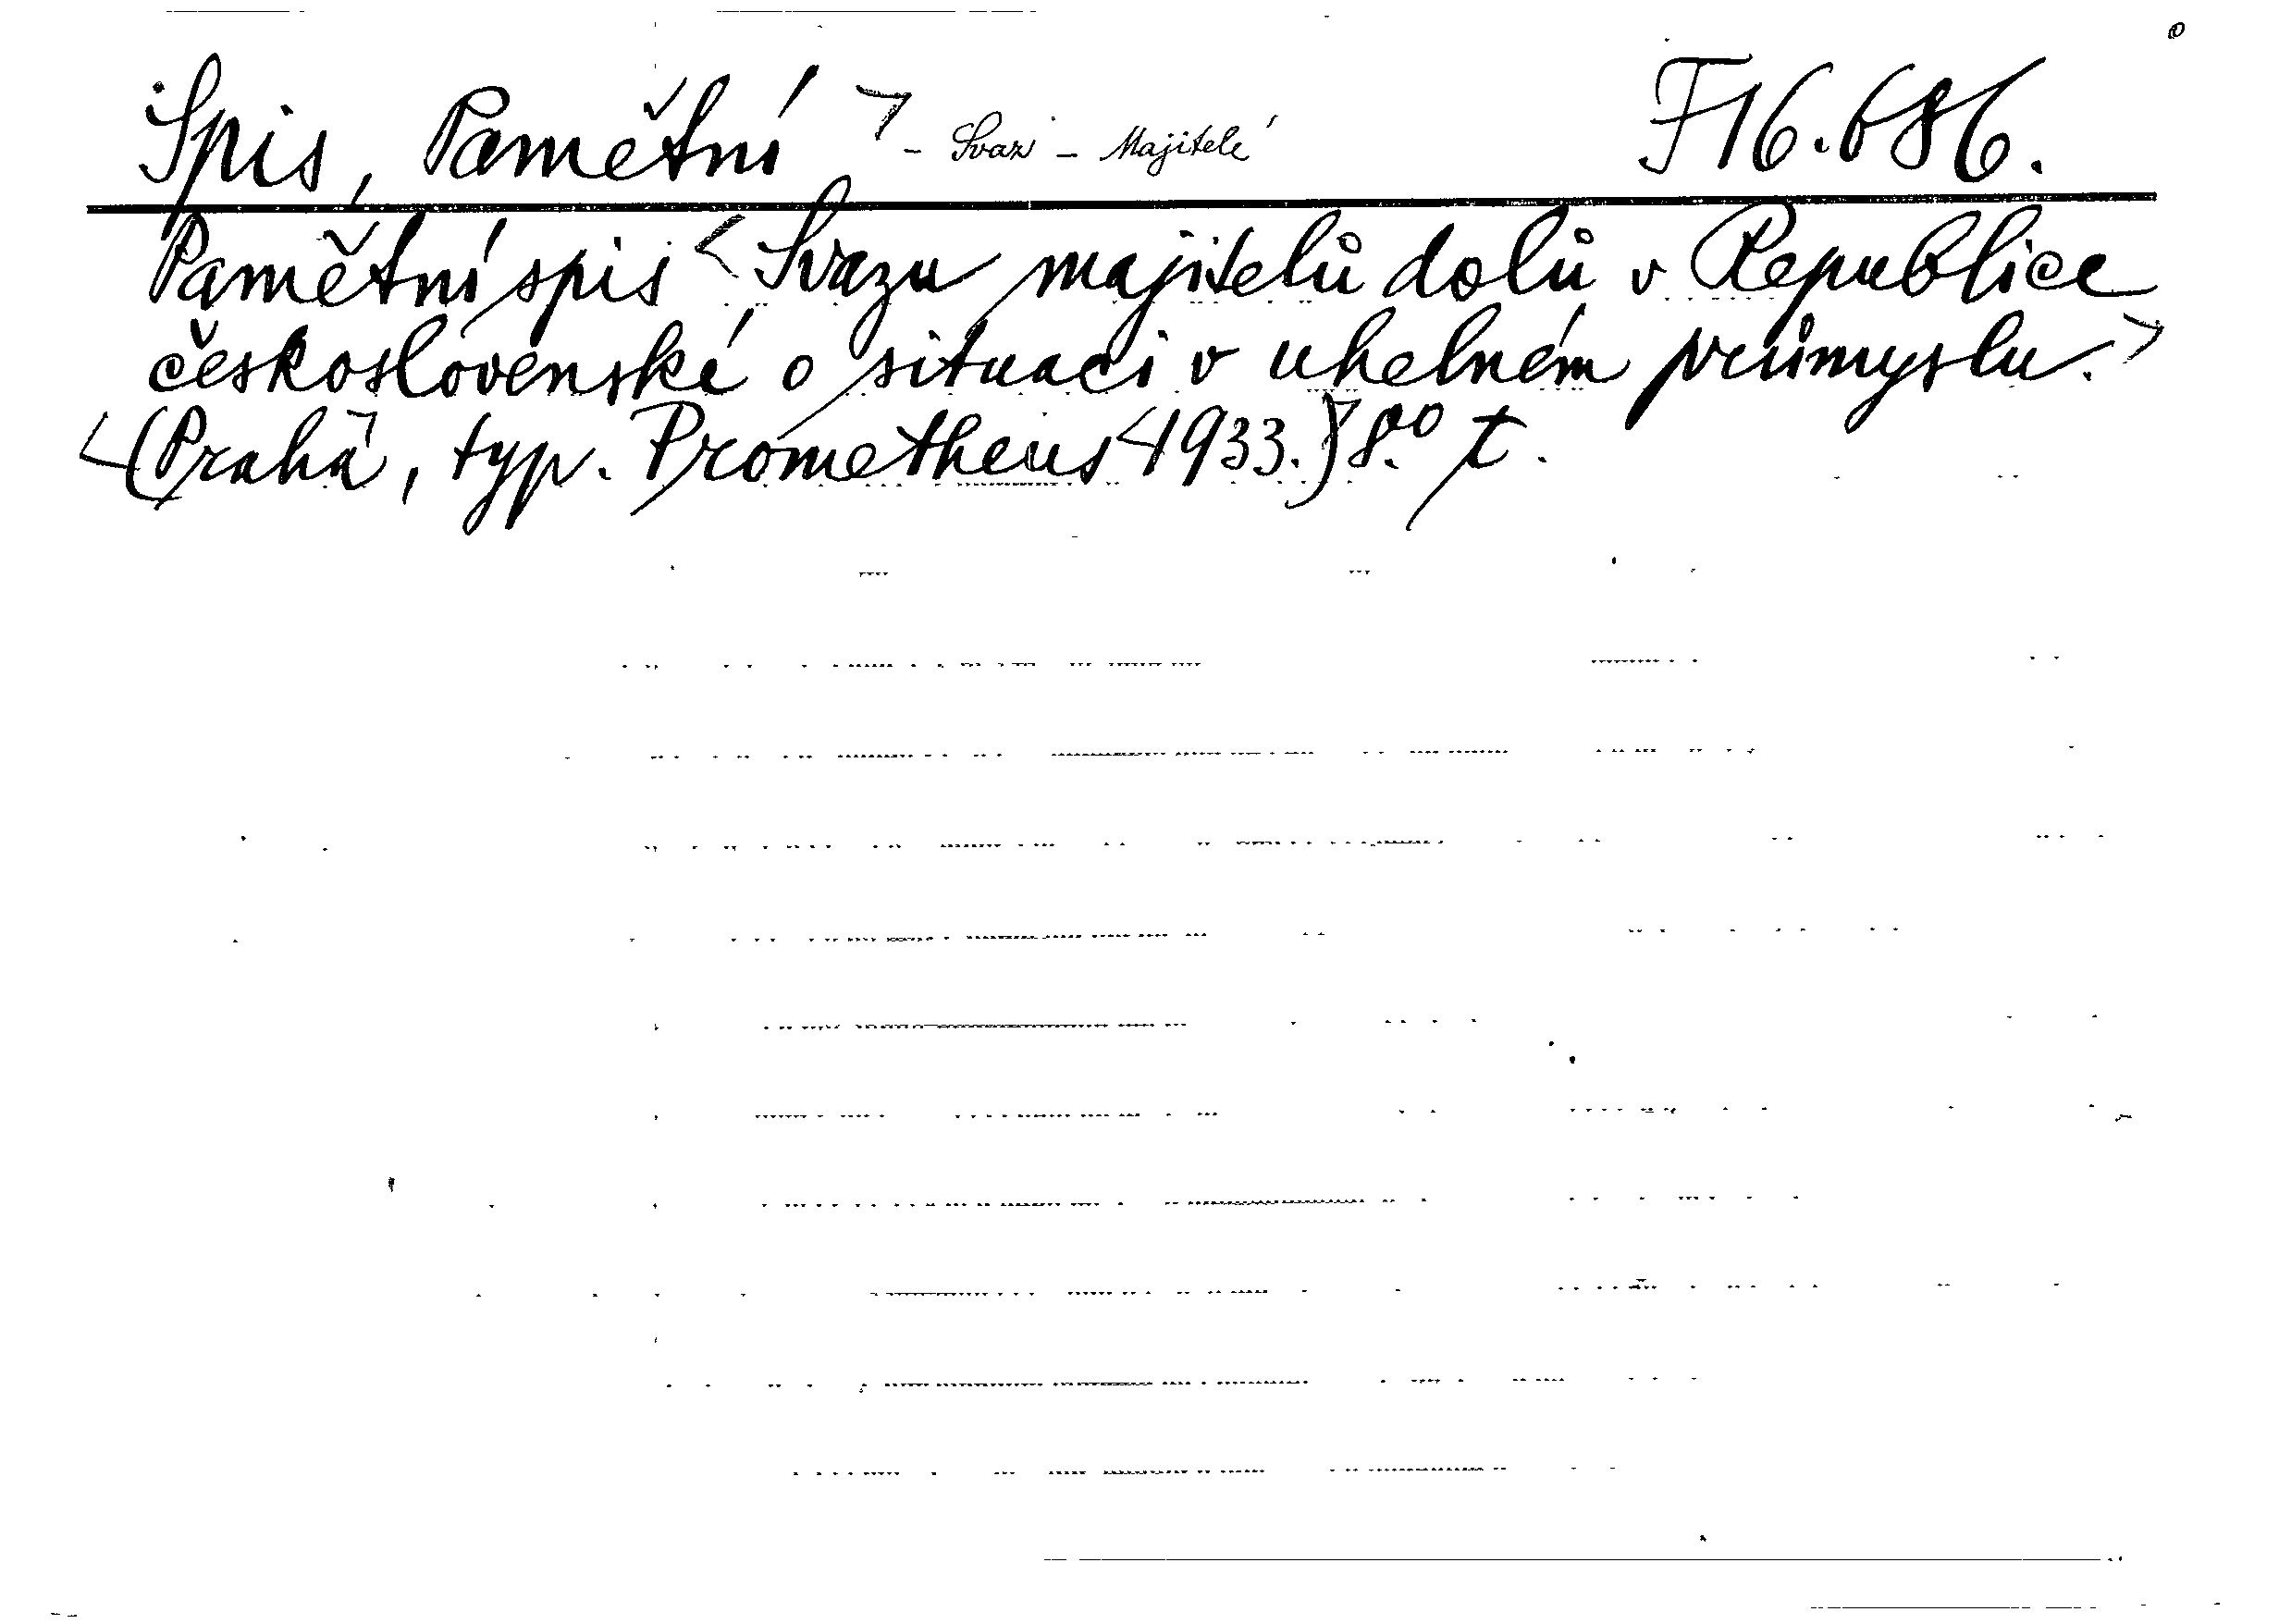 Spis, Pamětní > - Svaz - Majitelé F 16.686.
Pamětní spis < Svazu majitelů dolů v Republice
československé o situaci v uhelném průmyslu. >
< (Praha >, typ. Prometheus < 1933.) > 8.º t.